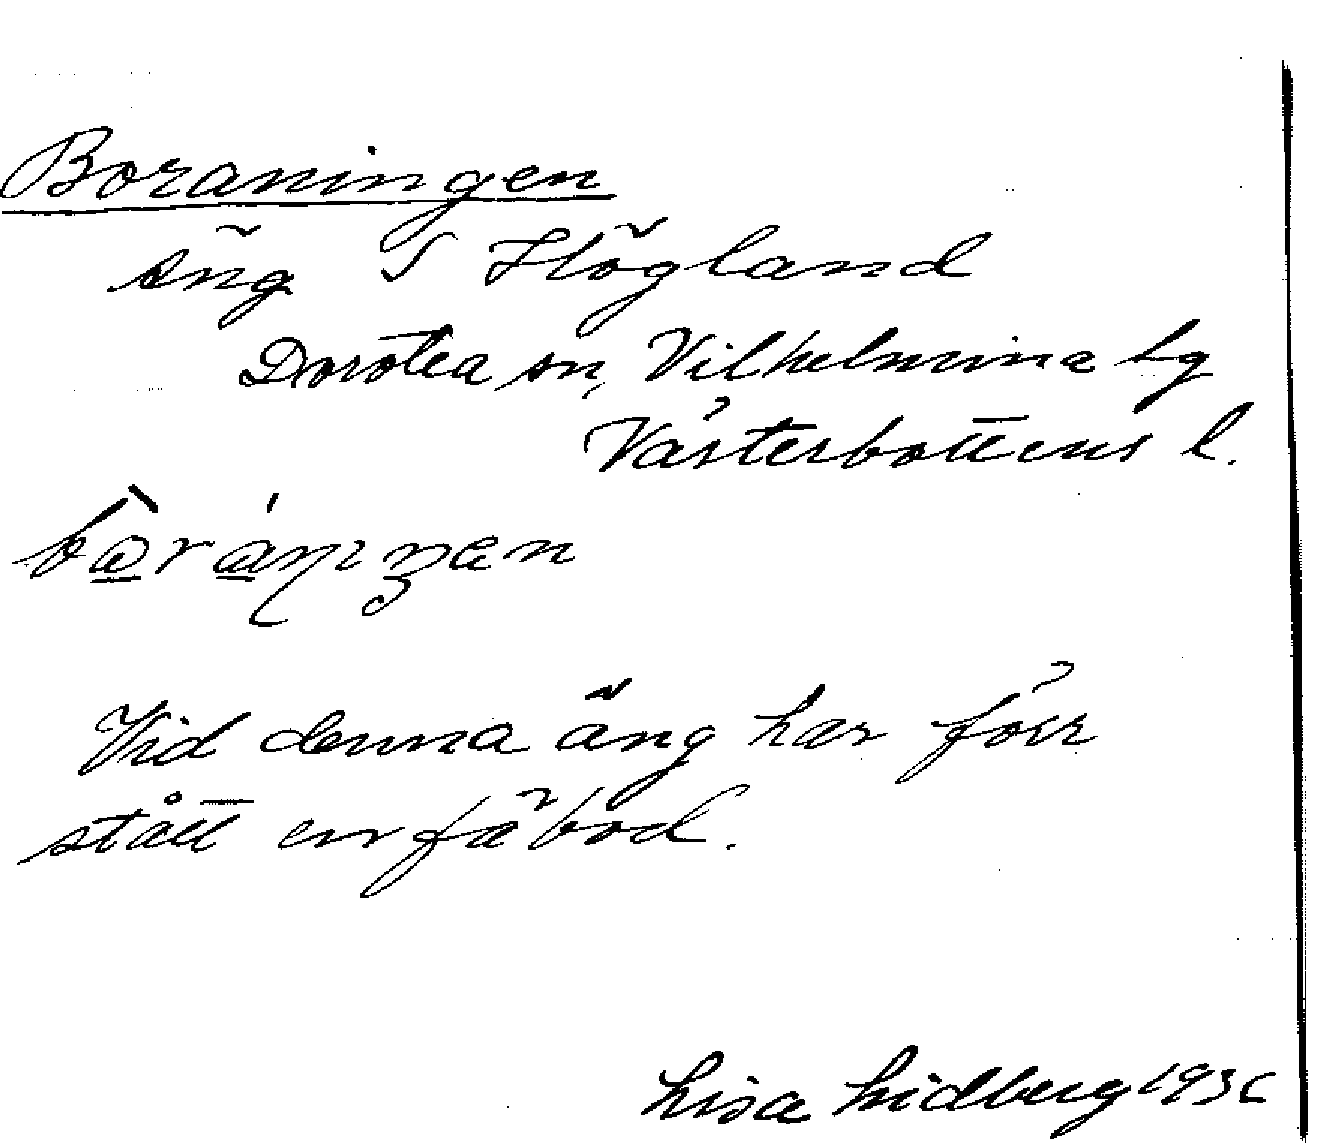 Boraningen
äng I Högland
Dorotea sn, Vilhelmina tg
Västerbottens l.
Vid denna äng har förr
stått en fäbod.
Lisa Lidberg 1936